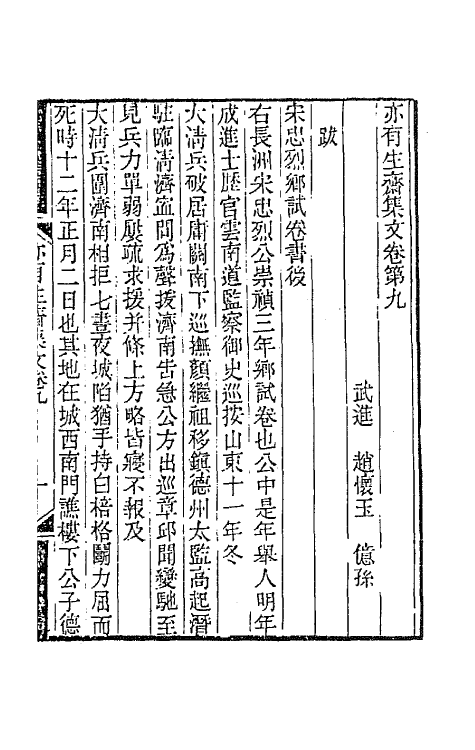 亦有生齋集文卷第九
武進 趙懷玉 億孫
跋
宋忠烈鄉試卷書後
右長洲宋忠烈公崇禎三年鄉試卷也公中是年舉人明年
成進士歷官雲南道監察御史巡按山東十一年冬
大淸兵破居庸關南下巡撫顏繼祖移鎭德州太監高起潛
駐臨淸濟寍問爲聲援濟南告急公方出巡章邱聞變馳至
見兵力單弱屢疏求援并條上方略皆寢不報及
大淸兵圍濟南相拒七晝夜城陷猶手持白棓格鬬力屈而
死時十二年正月二日也其地在城西南門譙樓下公子德
亦有生齋集文卷九